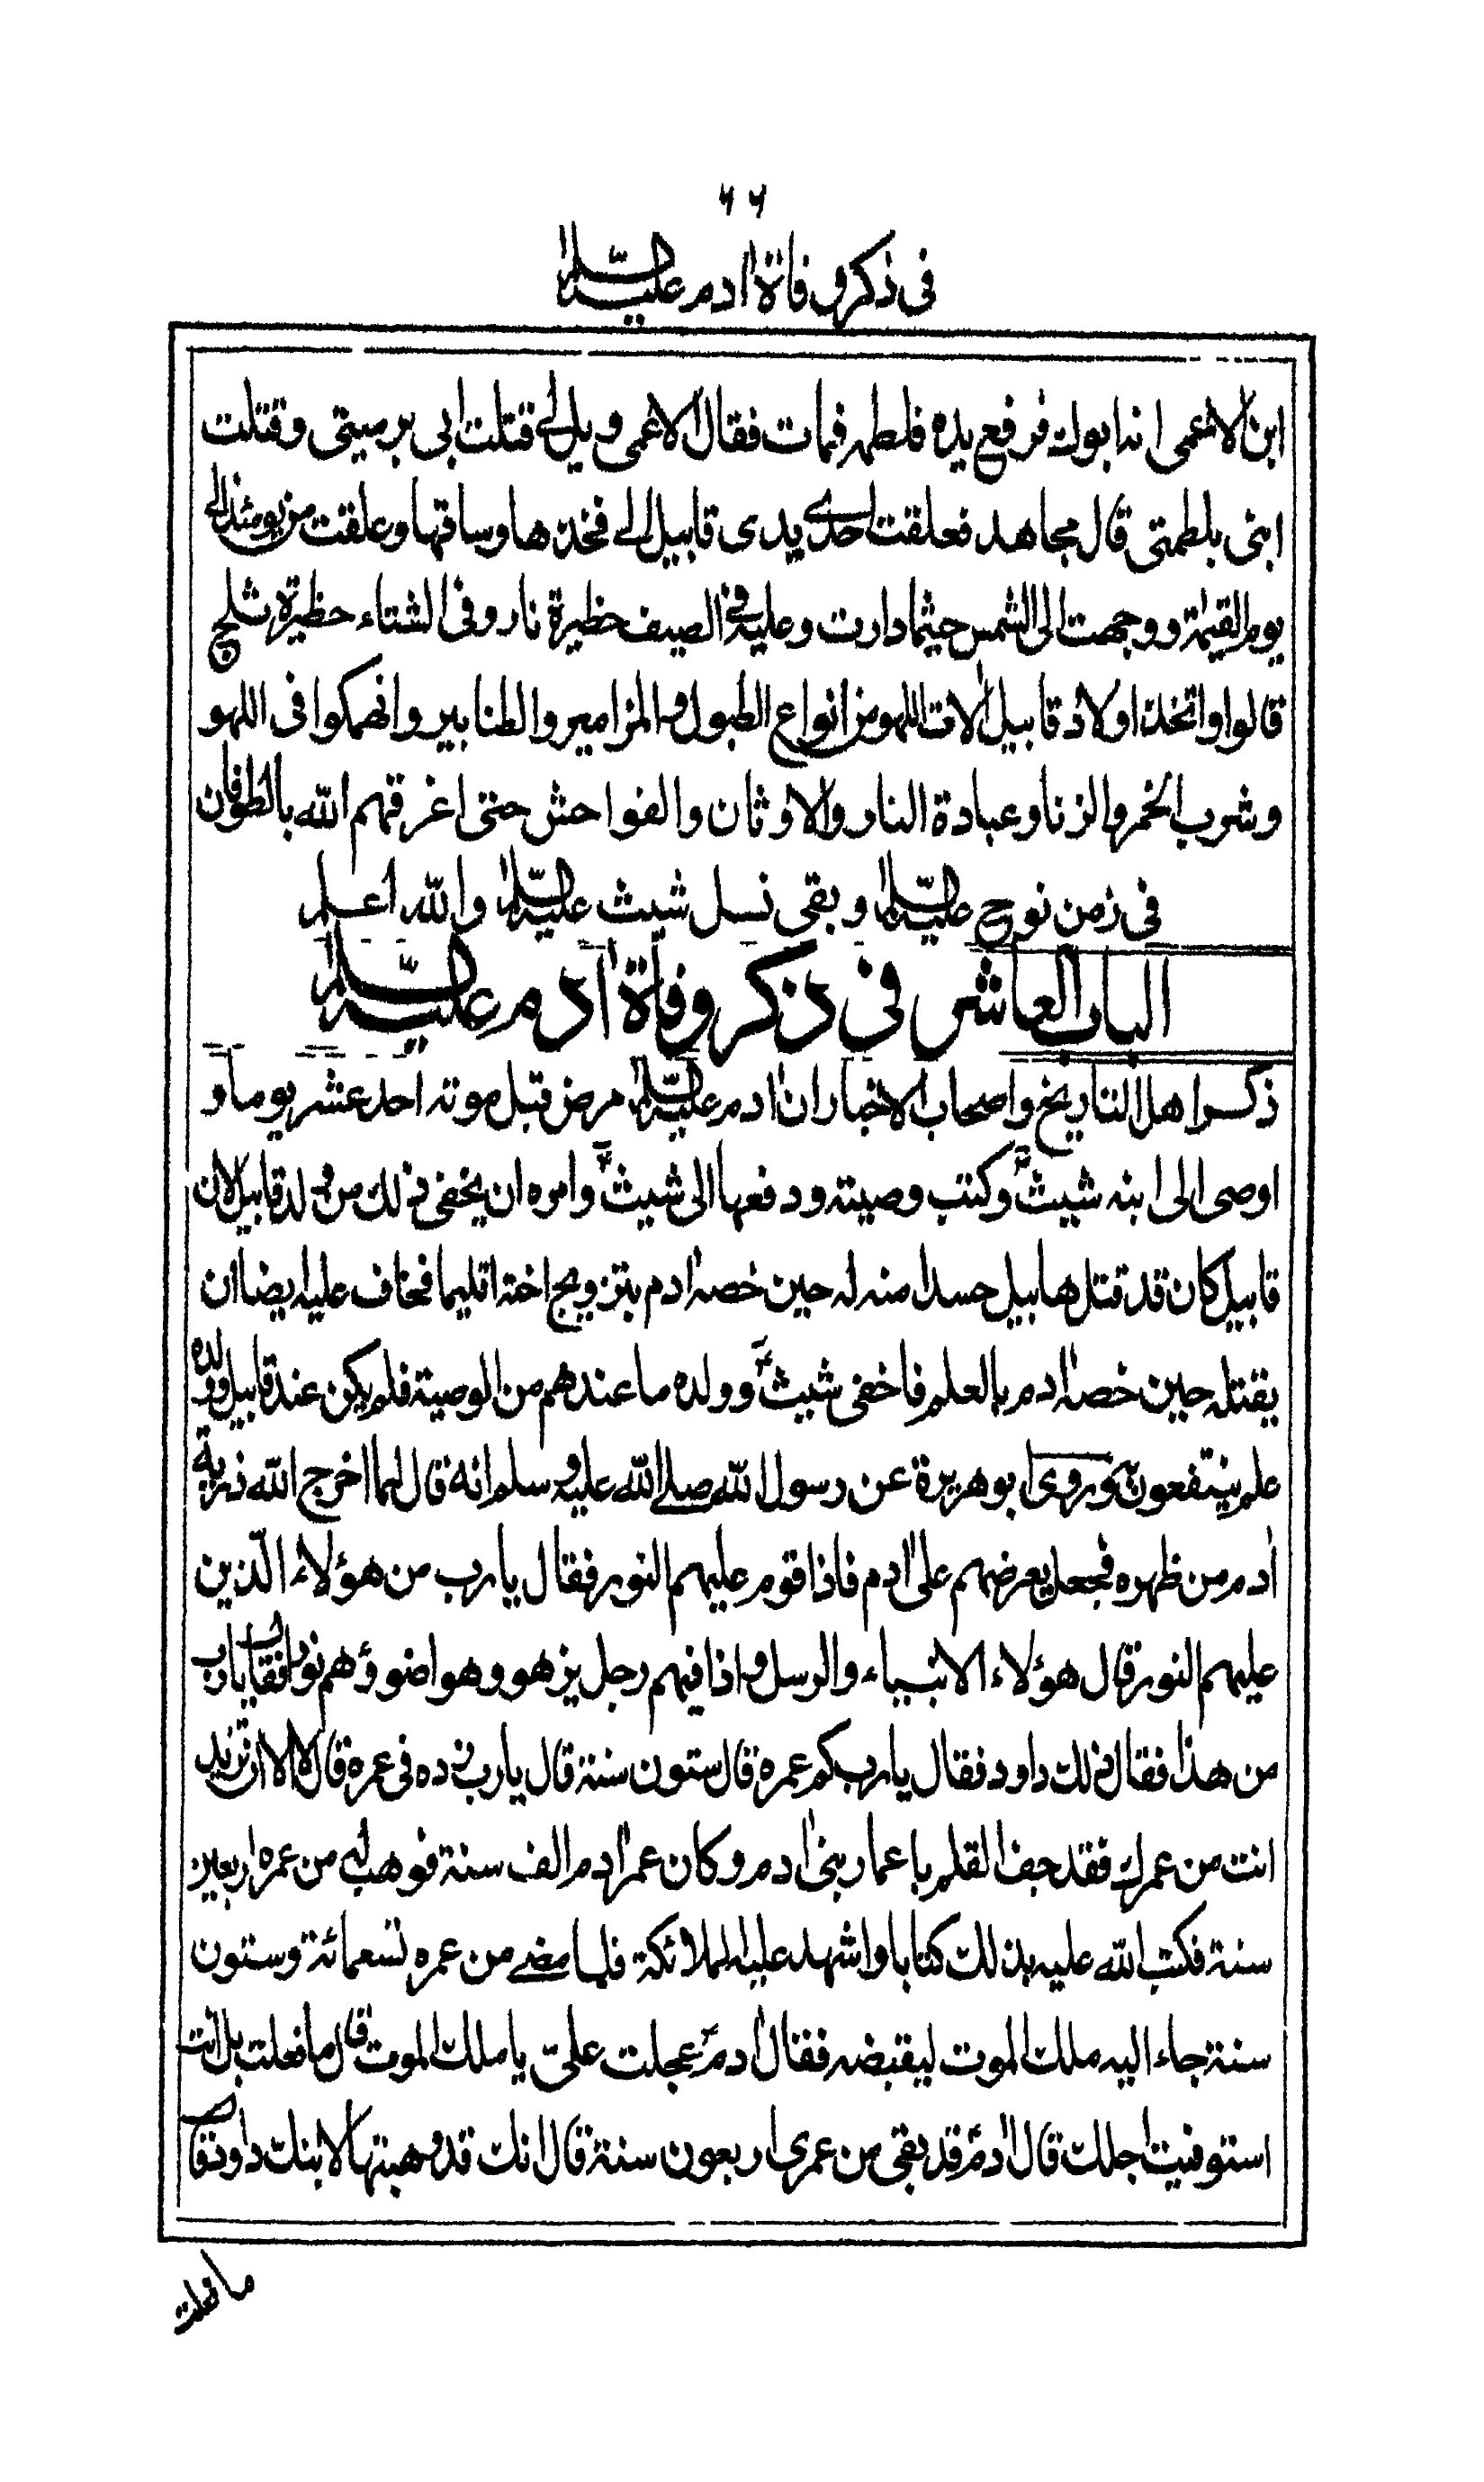 ٦٦
في ذكر وفاة اٰدم عليه السلام
ابن الاعمى انه ابوك فرفع يده فلطمه فمات فقال الاعمى ويل لي قتلت ابي برميتي وقتلت
ابني بلطمتي قال مجاهد فعلقت احدى يدى قابيل الى فخذها وساقها وعلقت من يومئذ الى
يوم القيمة ووجهت الى الشمس حيثما دارت وعليه في الصيف حظيرة نار وفي الشتاء حظيرة ثلج
قالوا واتخذ اولاد قابيل اٰلات اللهو من انواع الطبول والمزامير والطنابير وانهمكوا في اللهو
وشرب الخمر والزنا وعبادة النار والاوثان والفواحش حتى اغرقهم الله بالطوفان
في زمن نوح عليه السلام وبقي نسل شيث عليه السلام والله اعلم
الباب العاشر في ذكر وفاة اٰدم عليه السلام
ذكر اهل التاريخ واصحاب الاخبار ان اٰدم عليه السلام مرض قبل موته احد عشر يوما و
اوصى الى ابنه شيث ع وكتب وصيته ودفعها الى شيث ع وامره ان يخفي ذلك من ولد قابيل لان
قابيل كان قد قتل هابيل حسدا منه له حين خصه اٰدم بتزويج اخته اقليما فخاف عليه ايضا ان
يقتله حين خصه اٰدم بالعلم فاخفى شيث ع وولده ما عندهم من الوصية فلم يكن عند قابيل وولده
علم ينتفعون به وروى ابو هريرة عن رسول الله صلى الله عليه وسلم انه قال لما اخرج الله ذرية
اٰدم من ظهره فجعل يعرضهم على اٰدم فاذا قوم عليهم النور فقال يا رب من هؤلاء الذين
عليهم النور قال هؤلاء الانبياء والرسل واذا فيهم رجل يزهو وهو اضوؤهم نورا فقال يا رب
من هذا فقال ذلك داود فقال يا رب كم عمره قال ستون سنة قال يا رب زده في عمره قال لا الا ان تزيد
انت من عمرك فقد جف القلم باعمار بني اٰدم وكان عمر اٰدم الف سنة فوهب له من عمره اربعين
سنة فكتب الله عليه بذلك كتابا واشهد عليه الملائكة فلما مضى من عمره تسعمائة وستون
سنة جاء اليه ملك الموت ليقبضه فقال اٰدم ع عجلت عليّ يا ملك الموت قال ما فعلت بل انت
استوفيت اجلك قال اٰدم ع قد بقي من عمري اربعون سنة قال انك قد وهبتها لابنك داود قال
ما فعلت